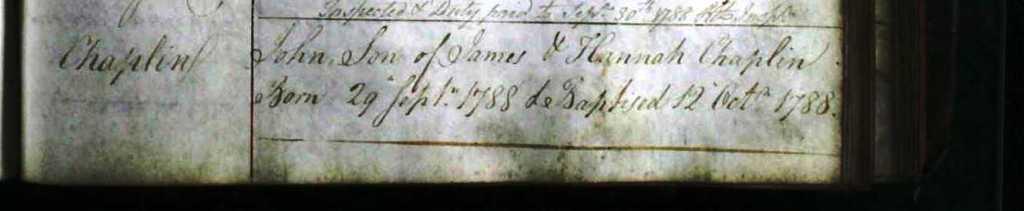 Inspected & Duty paid to Sept. 30th 1788
Chaplin
John, Son of James & Hannah Chaplin
Born 29 Sept.r 1788 & Baptised 12 Oct.r 1788.